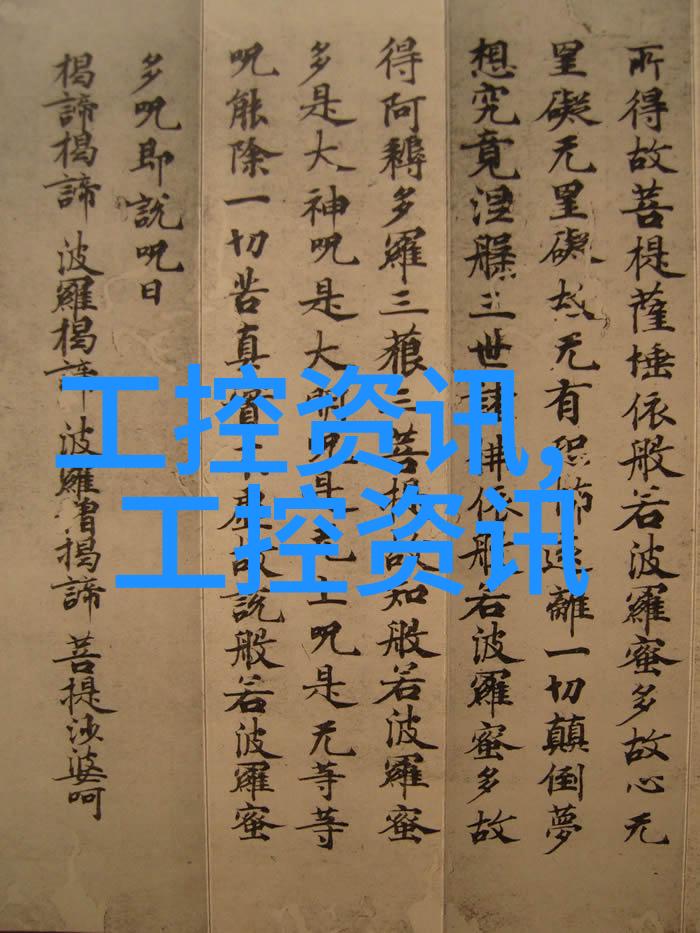 所得故菩提薩埵依般若波羅蜜多故心无
罣礙无罣礙故无有恐怖遠離一切顛倒夢
想究竟涅槃三世諸佛依般若波羅蜜多故
得阿耨多羅三藐三菩提故知般若波羅蜜
多是大神呪是大明呪是无上呪是无等等
呪能除一切苦真實不虛故說般若波羅蜜
多呪即說呪曰
揭諦揭諦 波羅揭諦 波羅僧揭諦 菩提沙婆呵
工控资讯,
工控资讯